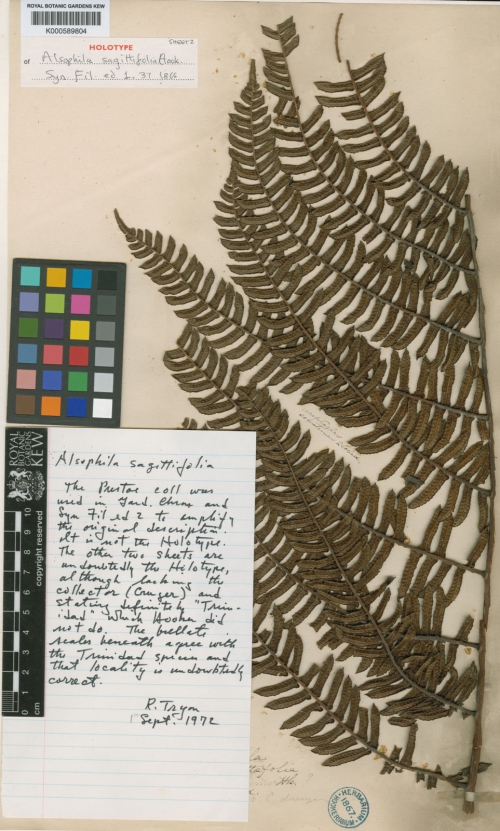 ROYAL BOTANIC GARDENS KEW
K000589804
HOLOTYPE
SHEET 2
of Alsophila sagittifolia Hook.
Syn. Fil. ed. 1. 37. 1866
Alsophila sagittifolia
The coll was
used in Gard. Chron. and
Syn Fil ed 2 to amplify
the original description.
It is not the Holotype.
The other two sheets are
undoubtedly the Holotype,
although lacking the
collector (Cruger) and
stating definitely "Trin-
idad" which Hooker did
not do. The bullate
scales beneath agree with
the Trinidad species and
that locality is undoubtedly
correct.
R. Tryon
1 Sept. 1972
ROYAL
BOTANIC
GARDENS
KEW
copyright reserved
0 1 2 3 4 5 6 7 8 9 10
cm
HERBARIUM
1867